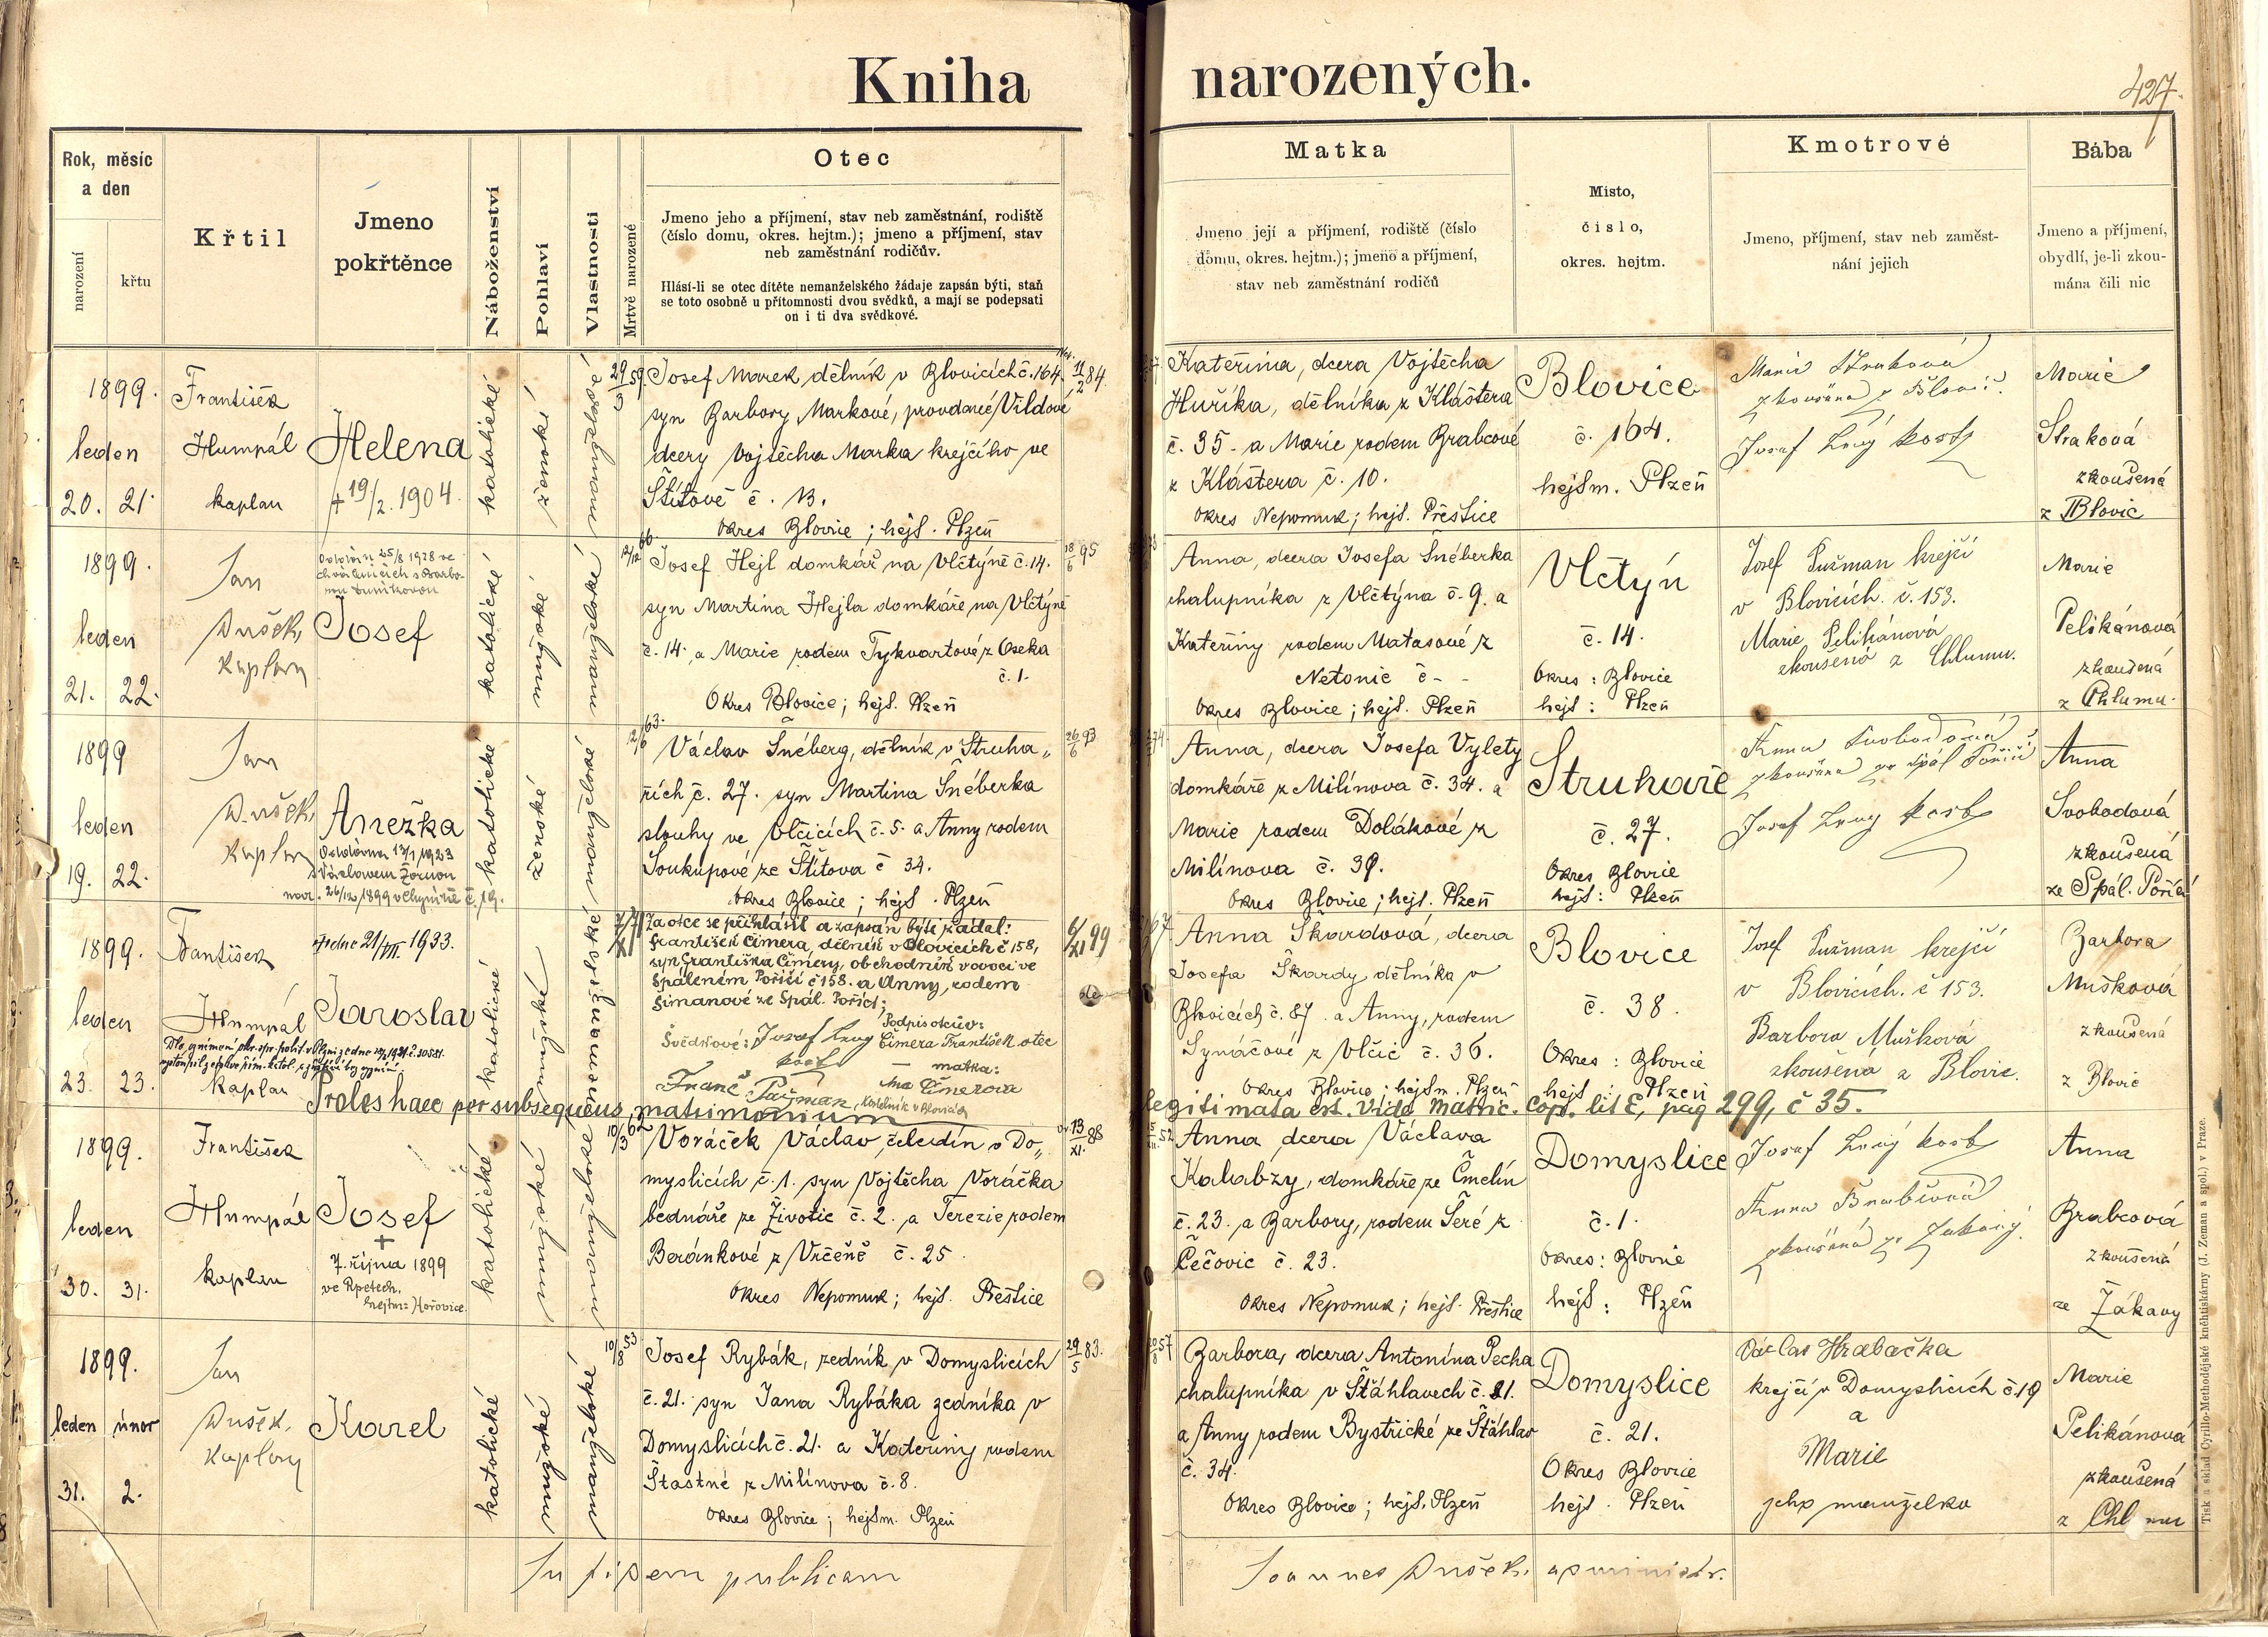 Kniha narozených.
427.
Rok, měsíc
a den
narození
křtu
Křtil
Jmeno
pokřtěnce
Náboženství
Pohlaví
Vlastnosti
Mrtvě narozené
Otec
Jmeno jeho a příjmení, stav neb zaměstnání, rodiště
(číslo domu, okres. hejtm.); jmeno a příjmení, stav
neb zaměstnání rodičův.
Hlásí-li se otec dítěte nemanželského žádaje zapsán býti, staň
se toto osobně u přítomnosti dvou svědků, a mají se podepsati
on i ti dva svědkové.
Matka
Jmeno její a příjmení, rodiště (číslo
domu, okres. hejtm.); jmeno a příjmení,
stav neb zaměstnání rodičů
Místo,
číslo,
okres. hejtm.
Kmotrové
Jmeno, příjmení, stav neb zaměst-
nání jejich
Bába
Jmeno a příjmení,
obydlí, je-li zkou-
mána čili nic
1899.
leden
20. 21.
František
Humpál
kaplan
Helena
+ 19/2. 1904.
katolické
ženské
manželské
29/3 59.
Josef Marek dělník v Blovicích č. 164.
syn Barbory Markové, provdané Vildové
dcery Vojtěcha Marka krejčího ve
Štítově č. 13.
Okres Blovice; hejt. Plzeň
11/2 84.
Kateřina, dcera Vojtěcha
Huříka, dělníka z Kláštera
č. 35. a Marie rodem Brabcové
z Kláštera č. 10.
Okres Nepomuk; hejt. Přeštice
Blovice
č. 164.
hejtm. Plzeň
Marie Straková
zkoušená z Blovic.
Josef Levý kostel
Marie
Straková
zkoušená
z Blovic
1899.
leden
21. 22.
Jan
Dušek,
kaplan
Oddán 25/8 1928 ve
Josef
katolické
mužské
manželské
12/12 66.
Josef Hejl domkář na Vlčtýně č. 14.
syn Martina Hejla domkáře na Vlčtýně
č. 14. a Marie rodem Tykvartové z Oseka
č. 1.
Okres Blovice; hejt. Plzeň
18/6 95
Anna, dcera Josefa Šnéberka
chalupníka z Vlčtýna č. 9. a
Kateřiny rodem Matasové z
Netonic č - -
Okres Blovice; hejt. Plzeň
Vlčtýn
č. 14.
Okres: Blovice
hejt: Plzeň
Josef Lužman krejčí
v Blovicích. č. 153.
Marie Pelikánová
zkoušená z Chlumu.
Marie
Pelikánová
zkoušená
z Chlumu.
1899
leden
19. 22.
Jan
Dušek,
kaplan
Anežka
Oddána 13/1 1923
s Václavem Žórnou
nar. 26/12 1899 v Chynině č. 19.
katolické
ženské
manželské
12/6 63.
Václav Šnéberg, dělník v Struha„
řích č. 27. syn Martina Šnéberka
slouhy ve Vlčicích č. 5. a Anny rodem
Soukupové ze Štítova č 34.
Okres Blovice; hejt. Plzeň
26/6 93
Anna, dcera Josefa Vylety
domkáře z Milínova č. 34. a
Marie rodem Dolákové z
Milínova č. 39.
Okres Blovice; hejt. Plzeň
Struhaře
č. 27.
Okres Blovice
hejt: Plzeň
Anna Svobodová
zkoušená ze Spál. Poříčí
Josef Levý kostel
Anna
Svobodová
zkoušená
ze Spál. Poříčí
1899.
leden
23. 23.
František
Humpál
kaplan
+ dne 21/VII. 1933.
Jaroslav
katolické
mužské
nemanželské
Za otce se přihlásil a zapsán býti žádal:
František Čimera, dělník v Blovicích č 158,
syn Františka Čimery, obchodník v ovoci ve
Spáleném Poříčí č 158. a Anny, rodem
Šimanové ze Spál. Poříčí;
Podpis otcův:
Svědkové: Josef Levý Čimera František otec
kostel
matka:
Franc Pajman, kostelník v Blovicích
Čimerova
6/XI 99
Anna Škardová, dcera
Josefa Škardy dělníka v
Blovicích č. 87. a Anny, rodem
Synáčové z Vlčic č. 36.
Okres Blovice; hejtm. Plzeň
Blovice
č. 38.
Okres: Blovice
hejt Plzeň
Josef Lužman krejčí
v Blovicích. č 153.
Barbora Mušková
zkoušená z Blovic.
Barbora
Mušková
zkoušená
z Blovic
Proles haec per subsequens matrimonium legitimata est. Vide Matric. Cop. lit E, pag 299, č 35.
1899.
leden
30. 31.
František
Humpál
kaplan
Josef
+
7. října 1899
ve Rpetech,
hejtm: Hořovice.
katolické
mužské
manželské
10/3 62
Voráček Václav, čeledín v Do„
myslicích č. 1. syn Vojtěcha Voráčka
bednáře ze Životic č. 2. a Terezie rodem
Beránkové z Vrčeně č. 25.
Okres Nepomuk; hejt. Přeštice
13/XI. 88
Anna, dcera Václava
Kalabzy, domkáře ze Čmelín
č. 23. a Barbory, rodem Šeré z
Čečovic č. 23.
Okres Nepomuk; hejt. Přeštice
Domyslice
č. 1.
Okres: Blovice
hejt: Plzeň
Josef Levý kostel
Anna Brabcová
zkoušená ze Žákavy.
Anna
Brabcová
zkoušená
ze Žákavy
1899.
leden únor
31. 2.
Jan
Dušek,
kaplan
Karel
katolické
mužské
manželské
10/8 53
Josef Rybák, zedník v Domyslicích
č. 21. syn Jana Rybáka zedníka v
Domyslicích č. 21. a Kateřiny rodem
Šťastné z Milínova č. 8.
Okres Blovice; hejtm. Plzeň
29/5 83.
Barbora, dcera Antonína Pecha
chalupníka v Štáhlavech č. 21.
a Anny rodem Bystřické ze Štáhlav
č. 34.
Okres Blovice; hejt. Plzeň
Domyslice
č. 21.
Okres Blovice
hejt. Plzeň
Václav Hrabačka
krejčí v Domyslicích č. 19
a
Marie
jeho manželka
Marie
Pelikánová
zkoušená
z Chlumu
In fidem publicam Joannes Dušek, administr.
Tisk a sklad Cyrillo-Methodějské knihtiskárny (J. Zeman a spol.) v Praze.